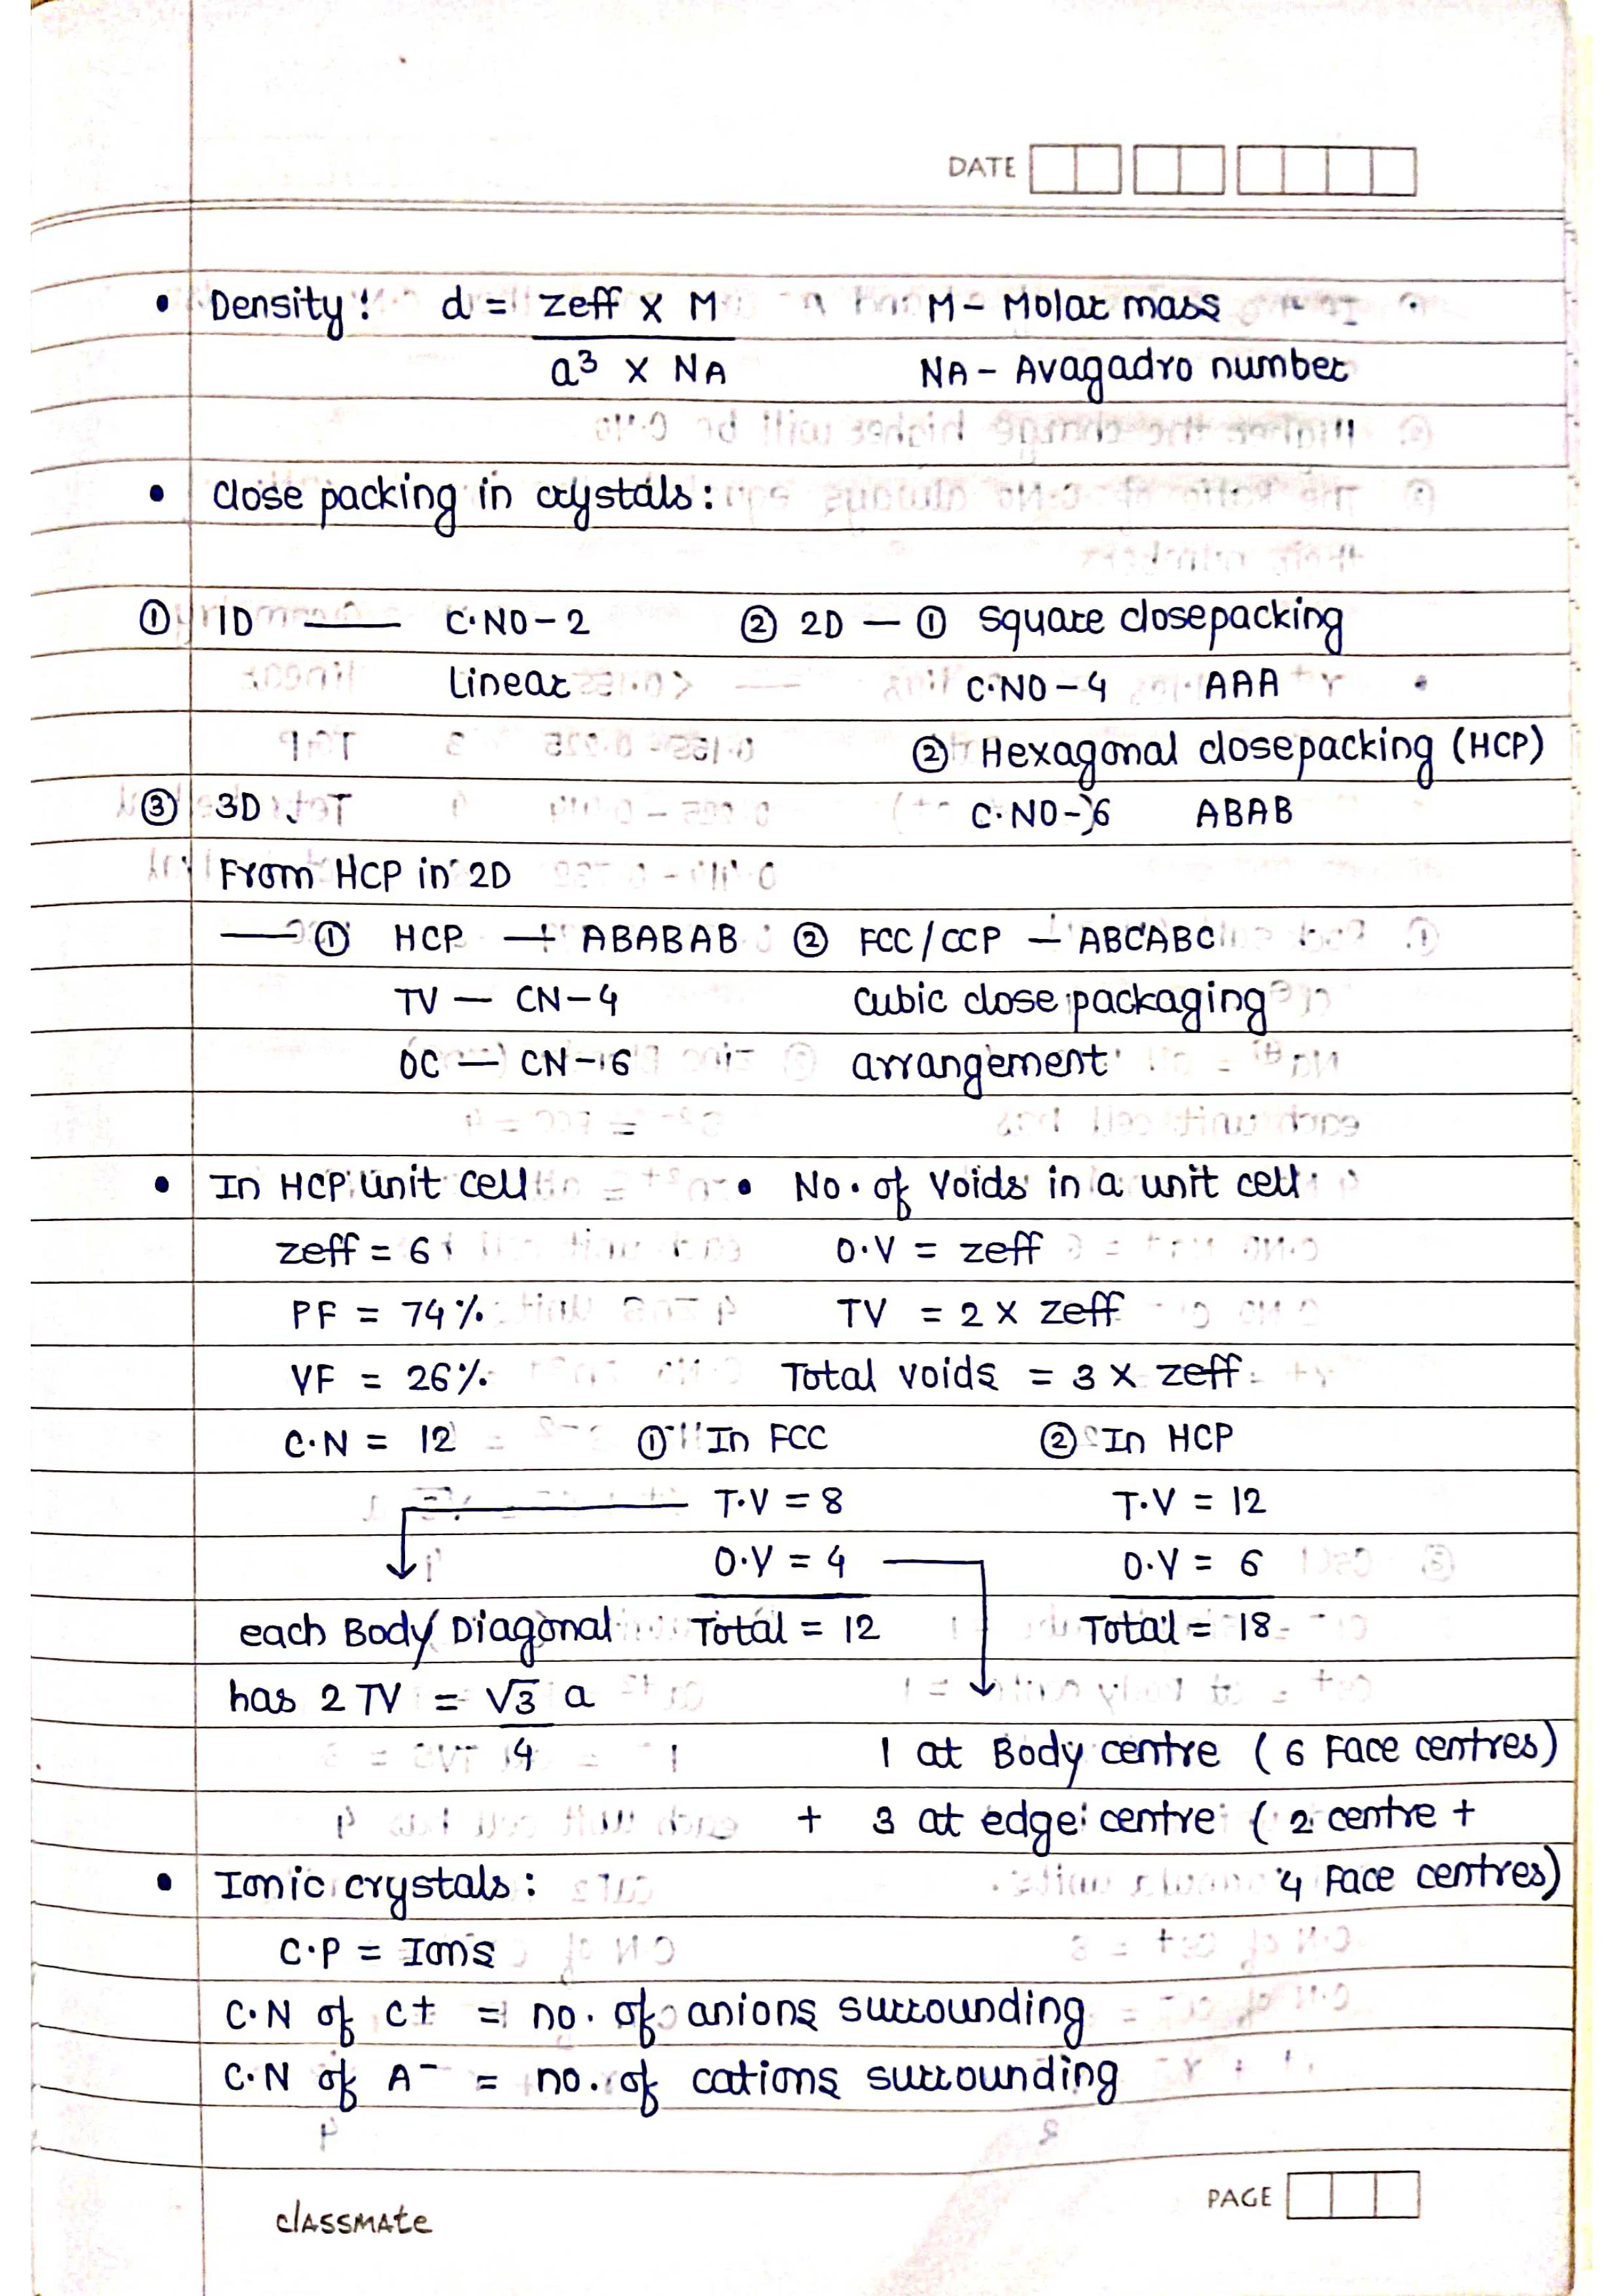 DATE
• Density: d = zeff x M M - Molar mass
a³ x NA NA - Avagadro number
• close packing in crystals:
① 1D — C.NO - 2 ② 2D — ① square closepacking
Linear C.NO - 4 AAA
② Hexagonal closepacking (HCP)
③ 3D C.NO - 6 ABAB
From HCP in 2D
— ① HCP — ABABAB ② FCC/CCP — ABCABC
TV — CN - 4 cubic close packaging
OC — CN - 6 arrangement
• In HCP unit cell • No. of Voids in a unit cell
zeff = 6 O.V = zeff
PF = 74% TV = 2 x zeff
VF = 26% Total voids = 3 x zeff
C.N = 12 ① In FCC ② In HCP
T.V = 8 T.V = 12
O.V = 4 O.V = 6
each Body Diagonal Total = 12 Total = 18
has 2 TV = √3 a
4 1 at Body centre (6 Face centres)
+ 3 at edge centre (2 centre +
• Ionic crystals: 4 Face centres)
C.P = Ions
C.N of C+ = no. of anions surrounding
C.N of A⁻ = no. of cations surrounding
PAGE
classmate